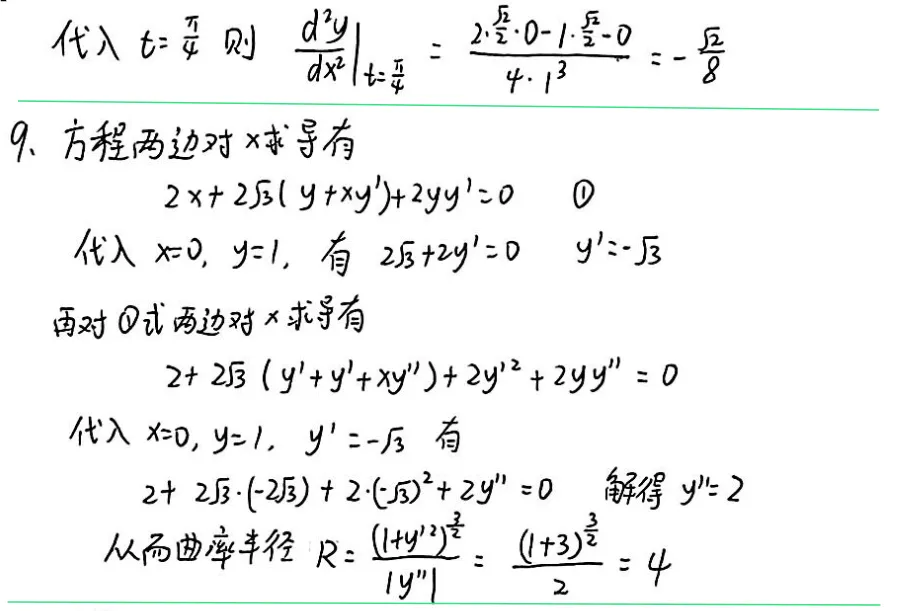 代入 t=π/4 则 d²y/dx²|t=π/4 = (2·√2/2·0-1·√2/2-0)/(4·1³) = -√2/8
9、方程两边对x求导有
2x+2√3(y+xy')+2yy'=0 ①
代入 x=0, y=1, 有 2√3+2y'=0 y'=-√3
再对①式两边对x求导有
2+2√3(y'+y'+xy'')+2y'²+2yy''=0
代入 x=0, y=1, y'=-√3 有
2+2√3·(-2√3)+2·(-√3)²+2y''=0 解得 y''=2
从而曲率半径 R=(1+y'²)^(3/2)/|y''| = (1+3)^(3/2)/2 = 4